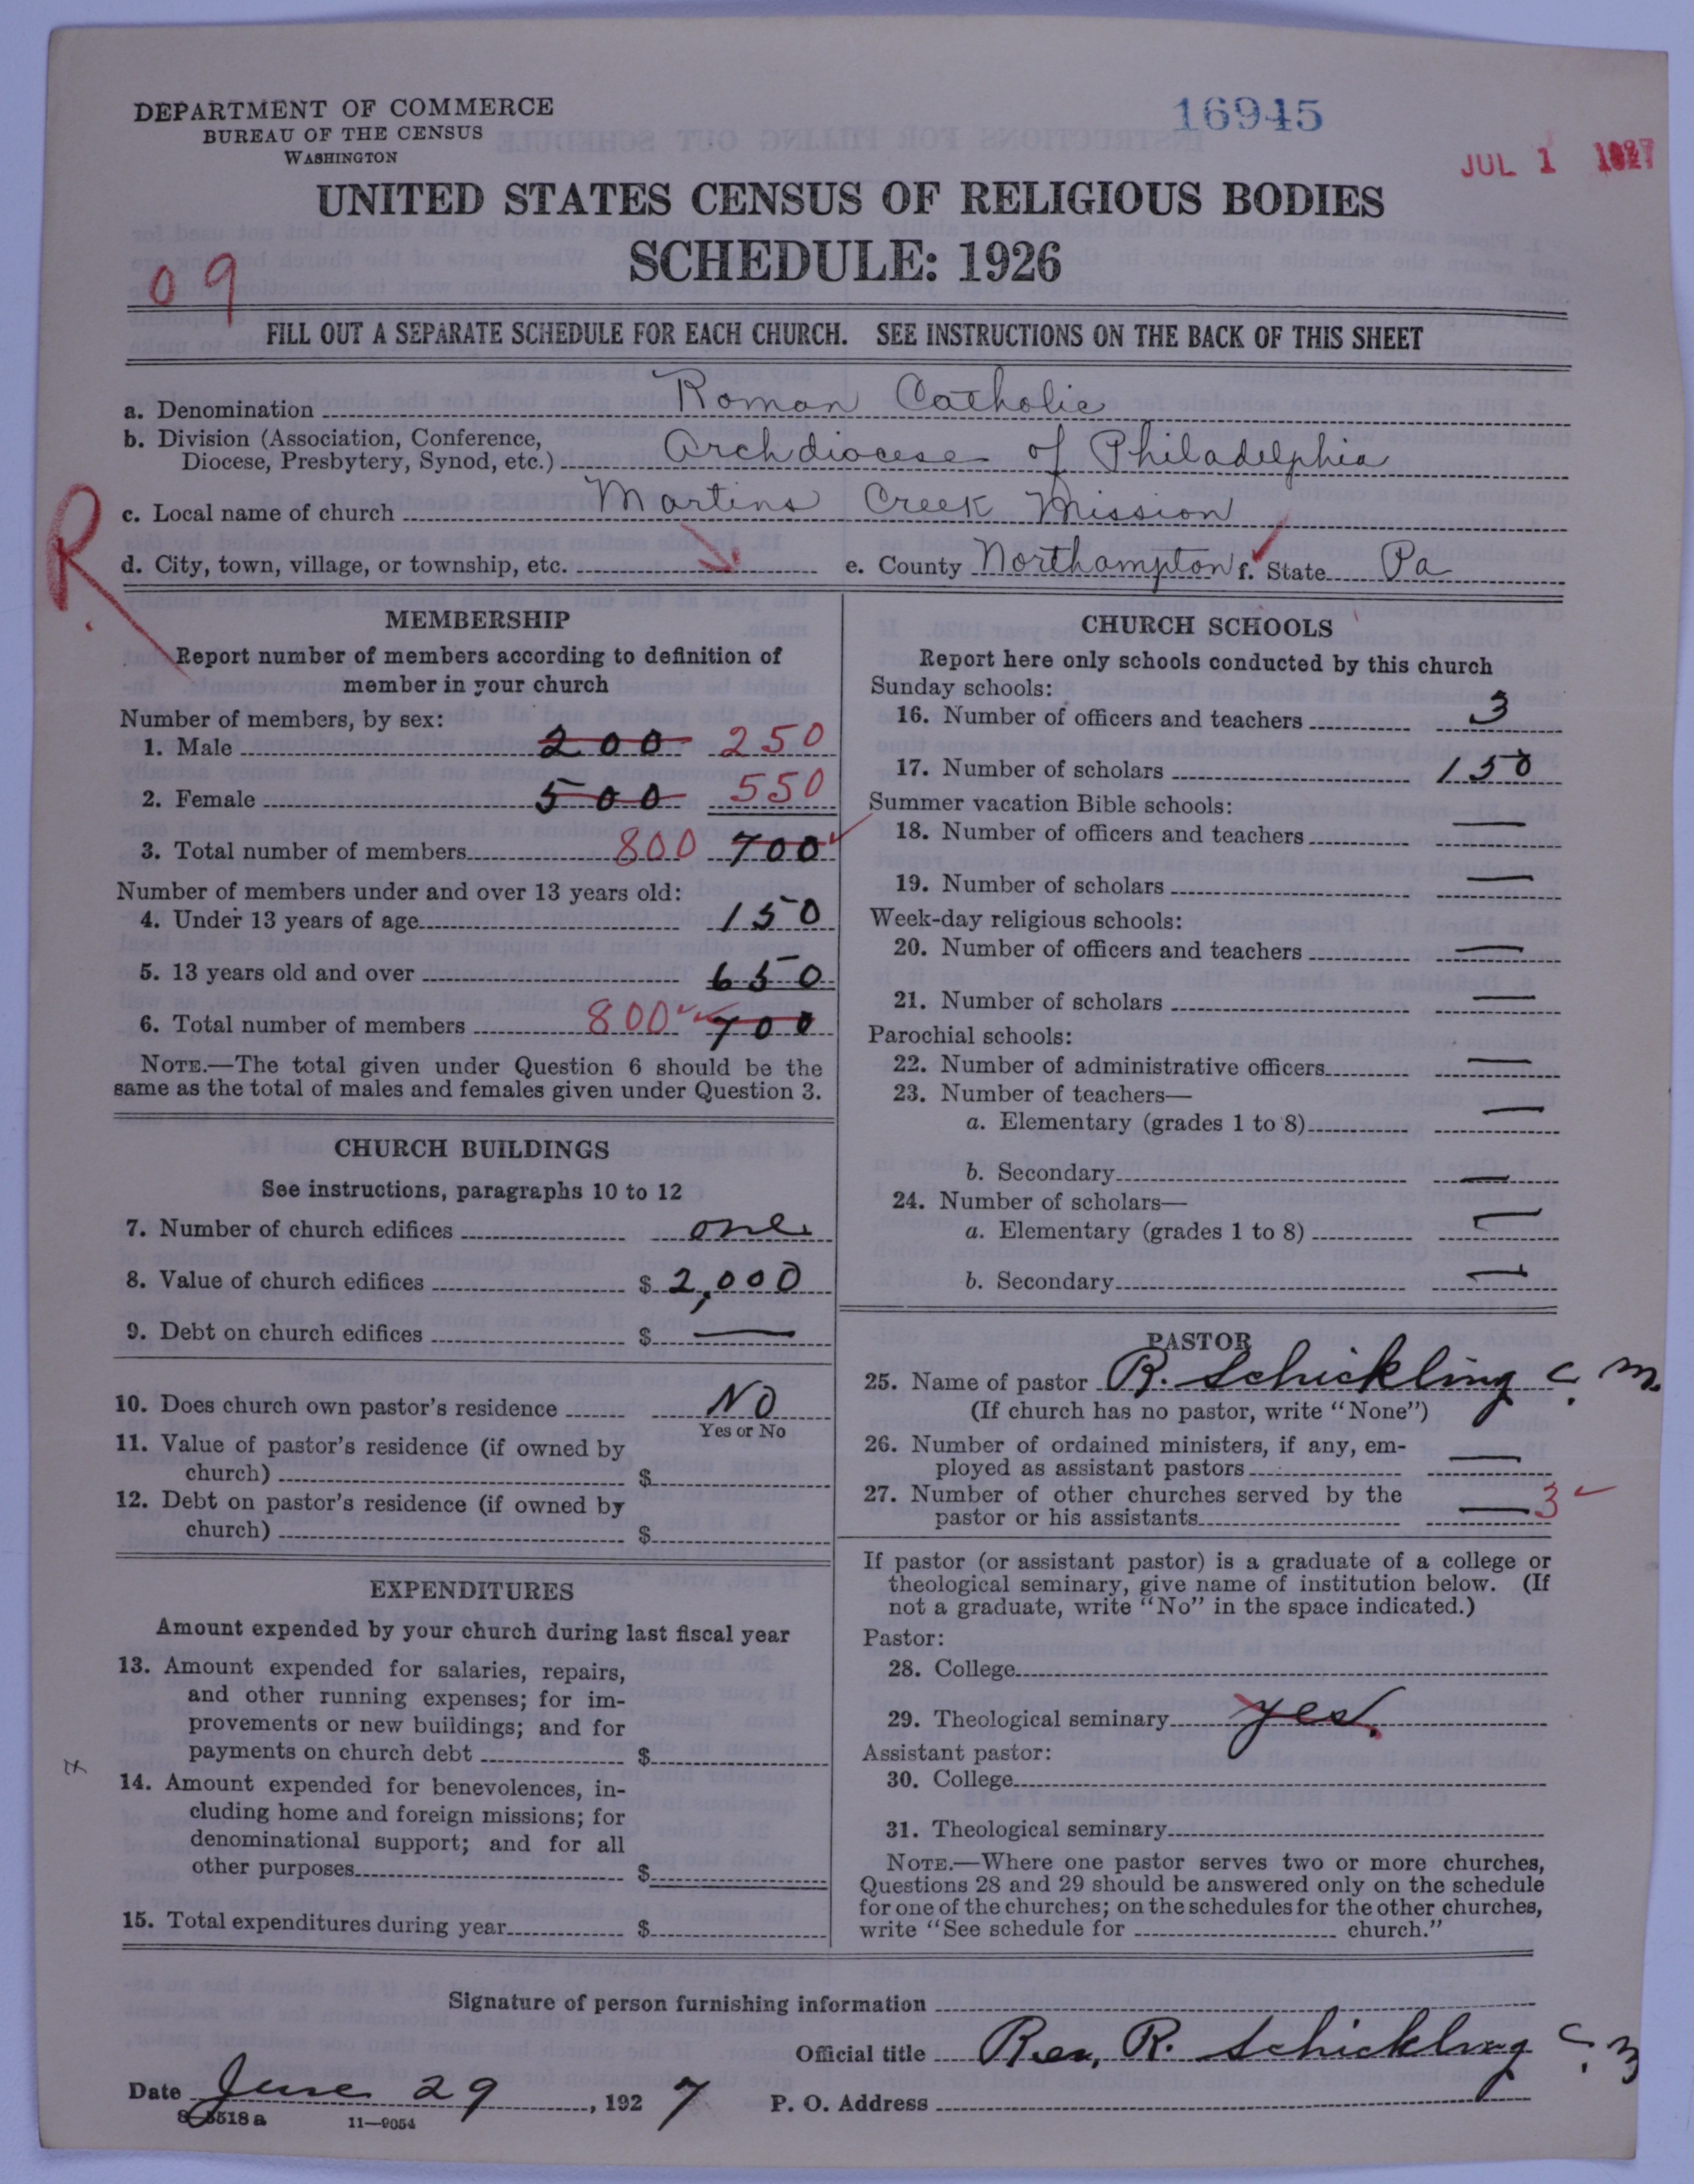 DEPARTMENT OF COMMERCE
BUREAU OF THE CENSUS
WASHINGTON
16945
JUL 1 1927
UNITED STATES CENSUS OF RELIGIOUS BODIES
SCHEDULE: 1926
09
FILL OUT A SEPARATE SCHEDULE FOR EACH CHURCH. SEE INSTRUCTIONS ON THE BACK OF THIS SHEET
a. Denomination Roman Catholic
b. Division (Association, Conference,
Diocese, Presbytery, Synod, etc.) Archdiocese of Philadelphia
c. Local name of church Martins Creek Mission
R.
d. City, town, village, or township, etc. e. County Northampton f. State Pa
MEMBERSHIP
Report number of members according to definition of
member in your church
Number of members, by sex:
1. Male 200 250
2. Female 500 550
3. Total number of members 800 700
Number of members under and over 13 years old:
4. Under 13 years of age 150
5. 13 years old and over 650
6. Total number of members 800 700
NOTE.—The total given under Question 6 should be the
same as the total of males and females given under Question 3.
CHURCH BUILDINGS
See instructions, paragraphs 10 to 12
7. Number of church edifices one
8. Value of church edifices $ 2,000
9. Debt on church edifices $ —
10. Does church own pastor's residence No
Yes or No
11. Value of pastor's residence (if owned by
church) $
12. Debt on pastor's residence (if owned by
church) $
EXPENDITURES
Amount expended by your church during last fiscal year
13. Amount expended for salaries, repairs,
and other running expenses; for im-
provements or new buildings; and for
payments on church debt $
14. Amount expended for benevolences, in-
cluding home and foreign missions; for
denominational support; and for all
other purposes $
15. Total expenditures during year $
CHURCH SCHOOLS
Report here only schools conducted by this church
Sunday schools:
16. Number of officers and teachers 3
17. Number of scholars 150
Summer vacation Bible schools:
18. Number of officers and teachers —
19. Number of scholars —
Week-day religious schools:
20. Number of officers and teachers —
21. Number of scholars —
Parochial schools:
22. Number of administrative officers —
23. Number of teachers—
a. Elementary (grades 1 to 8) —
b. Secondary —
24. Number of scholars—
a. Elementary (grades 1 to 8) —
b. Secondary —
PASTOR
25. Name of pastor R. Schickling C. M.
(If church has no pastor, write "None")
26. Number of ordained ministers, if any, em-
ployed as assistant pastors —
27. Number of other churches served by the
pastor or his assistants — 3
If pastor (or assistant pastor) is a graduate of a college or
theological seminary, give name of institution below. (If
not a graduate, write "No" in the space indicated.)
Pastor:
28. College
29. Theological seminary yes.
Assistant pastor:
30. College
31. Theological seminary
NOTE.—Where one pastor serves two or more churches,
Questions 28 and 29 should be answered only on the schedule
for one of the churches; on the schedules for the other churches,
write "See schedule for church."
Signature of person furnishing information
Official title Rev. R. Schickling C. M
Date June 29, 1927 P. O. Address
8-5518 a 11—9054